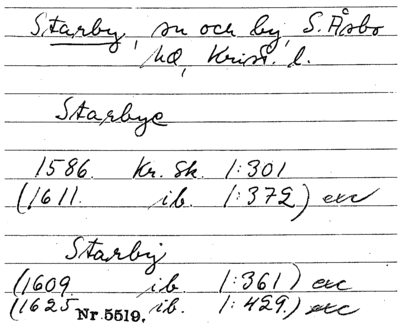 Starby, sn och by, S. Åsbo
hd, Krist. l.
Starbye
1586. Kr. Sk. 1:301
(1611. ib. 1:372) etc
Starby
(1609. ib. 1:361) etc
(1625 Nr. 5519. ib. 1:429.) etc